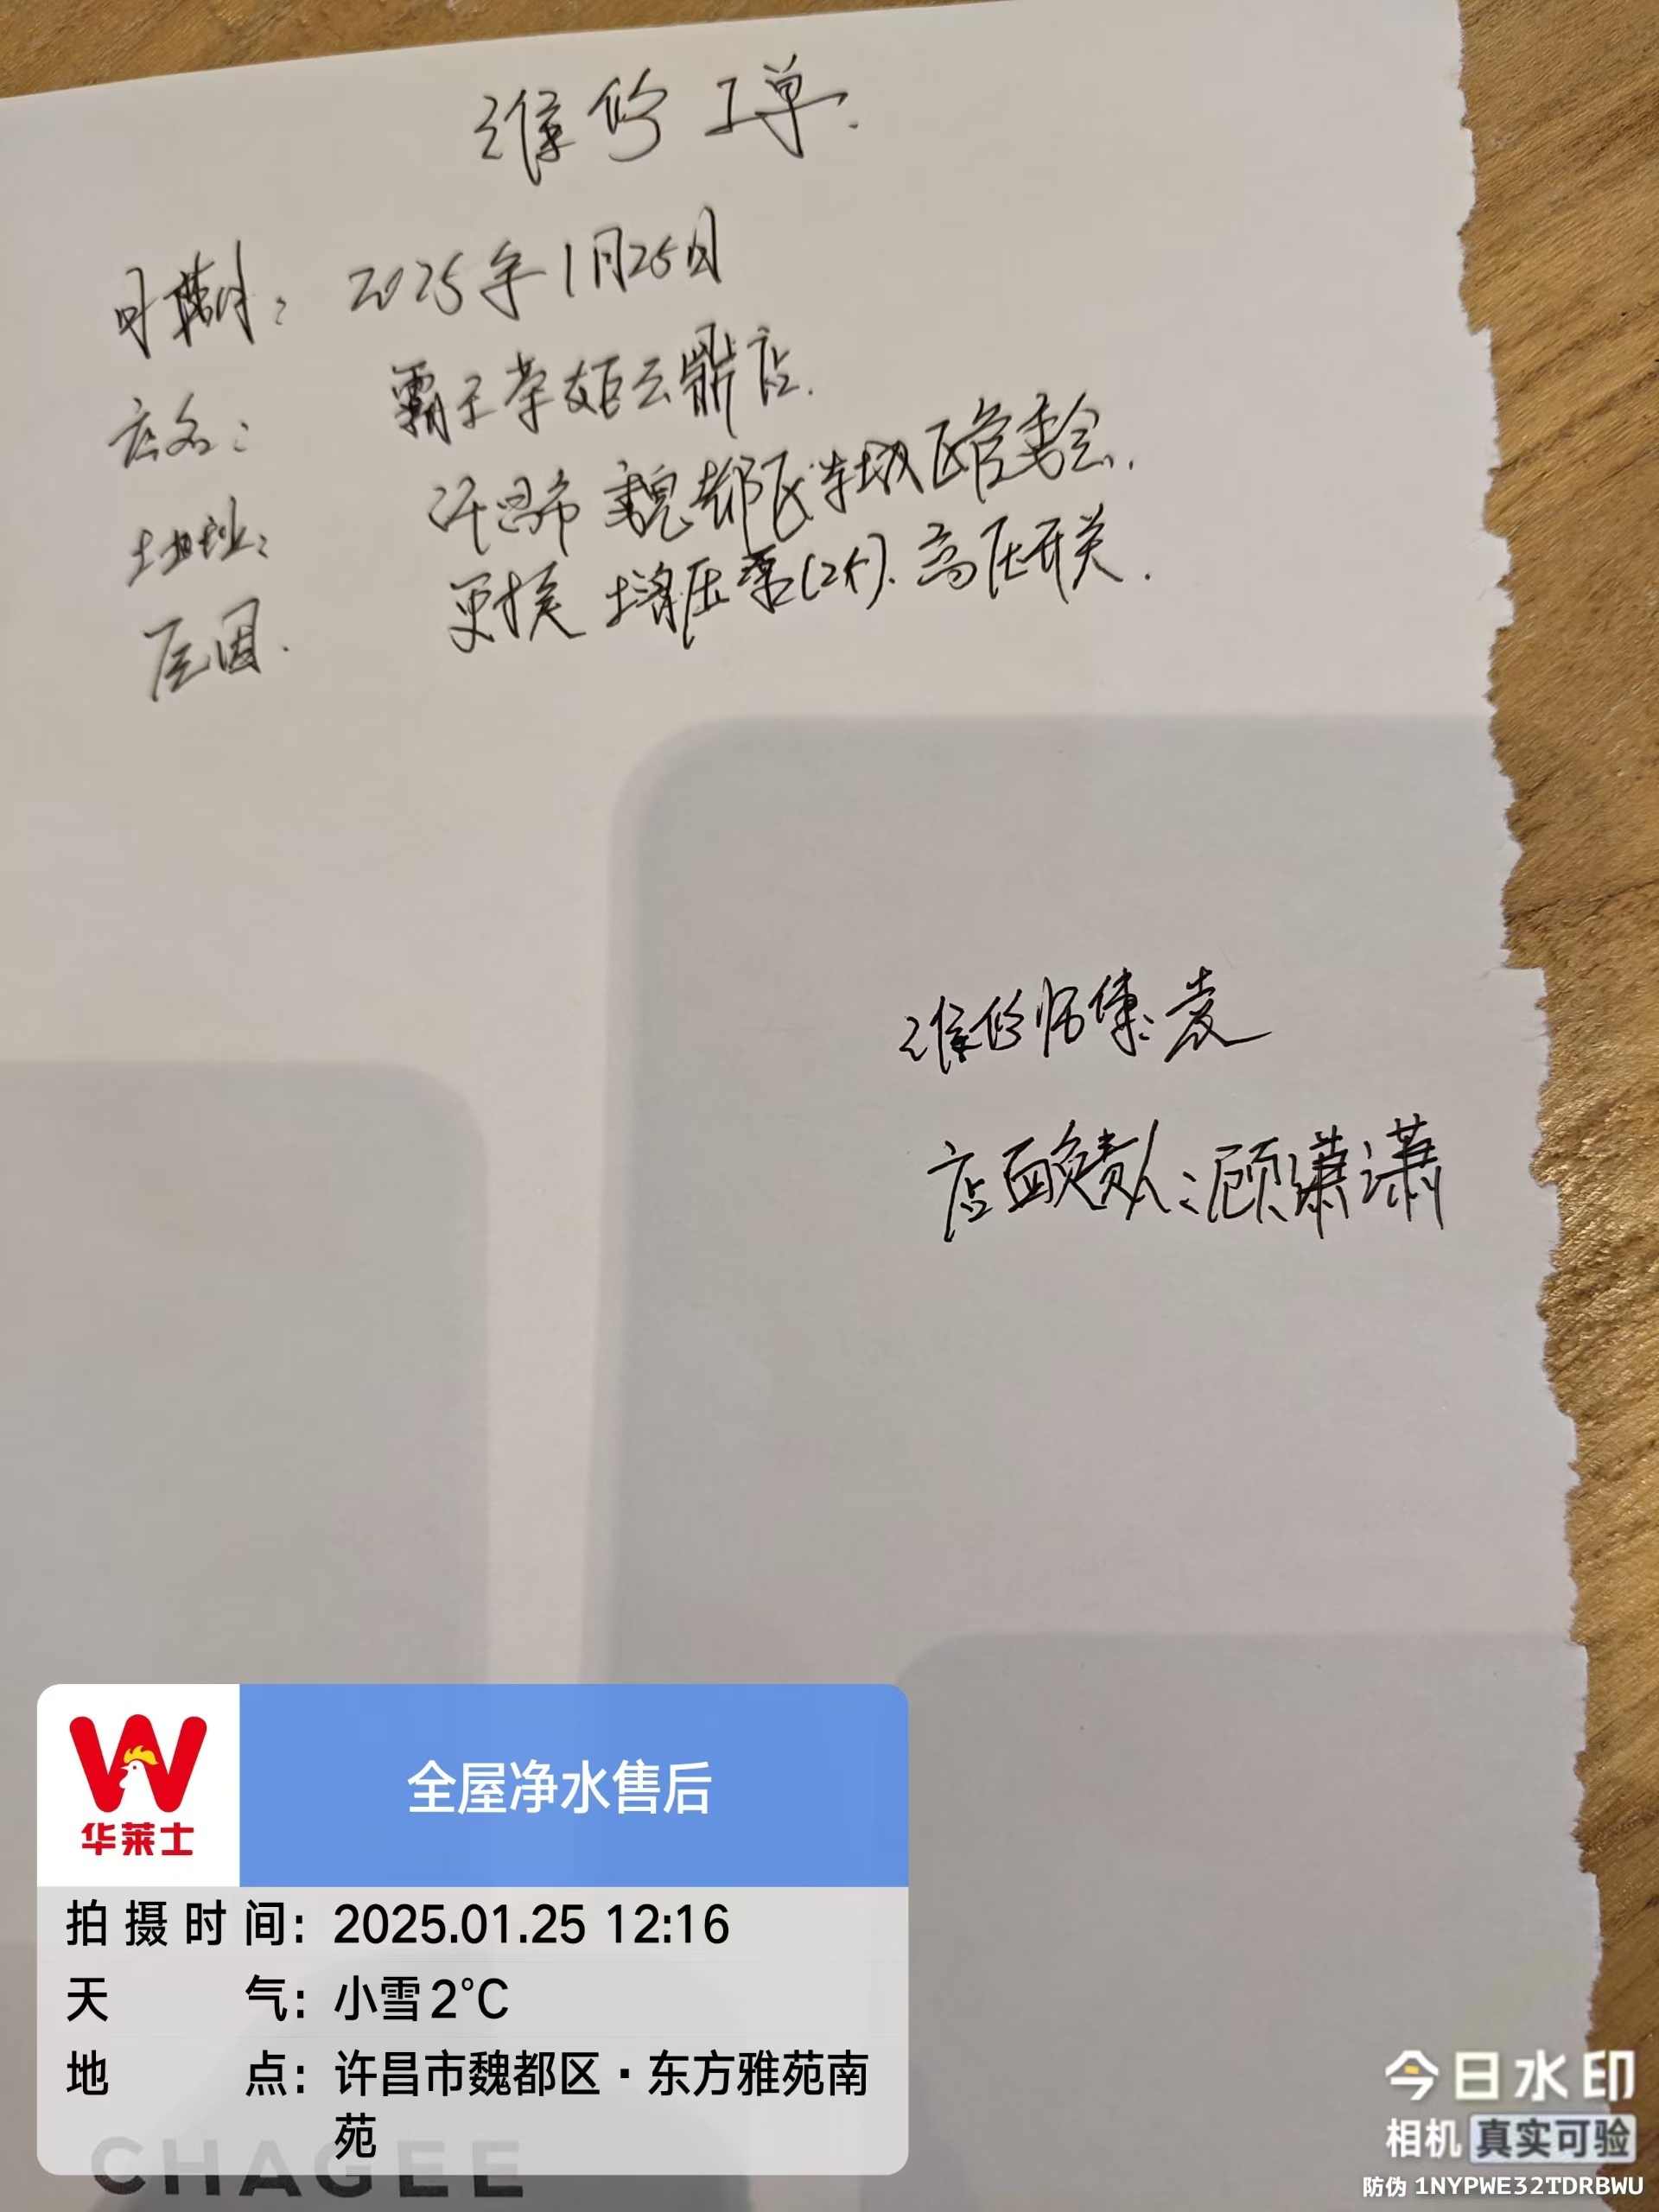 维修工单.
日期: 2025年1月25日
店名: 霸王茶姬云鼎店.
地址: 许昌市魏都区半城区管委会.
原因. 更换增压泵(2个).高压开关.
维修师傅:袁
店面负责人:顾潇潇
华莱士
全屋净水售后
拍摄时间: 2025.01.25 12:16
天气: 小雪2℃
地点: 许昌市魏都区·东方雅苑南
苑
CHAGEE
今日水印
相机 真实可验
防伪 1NYPWE32TDRBWU